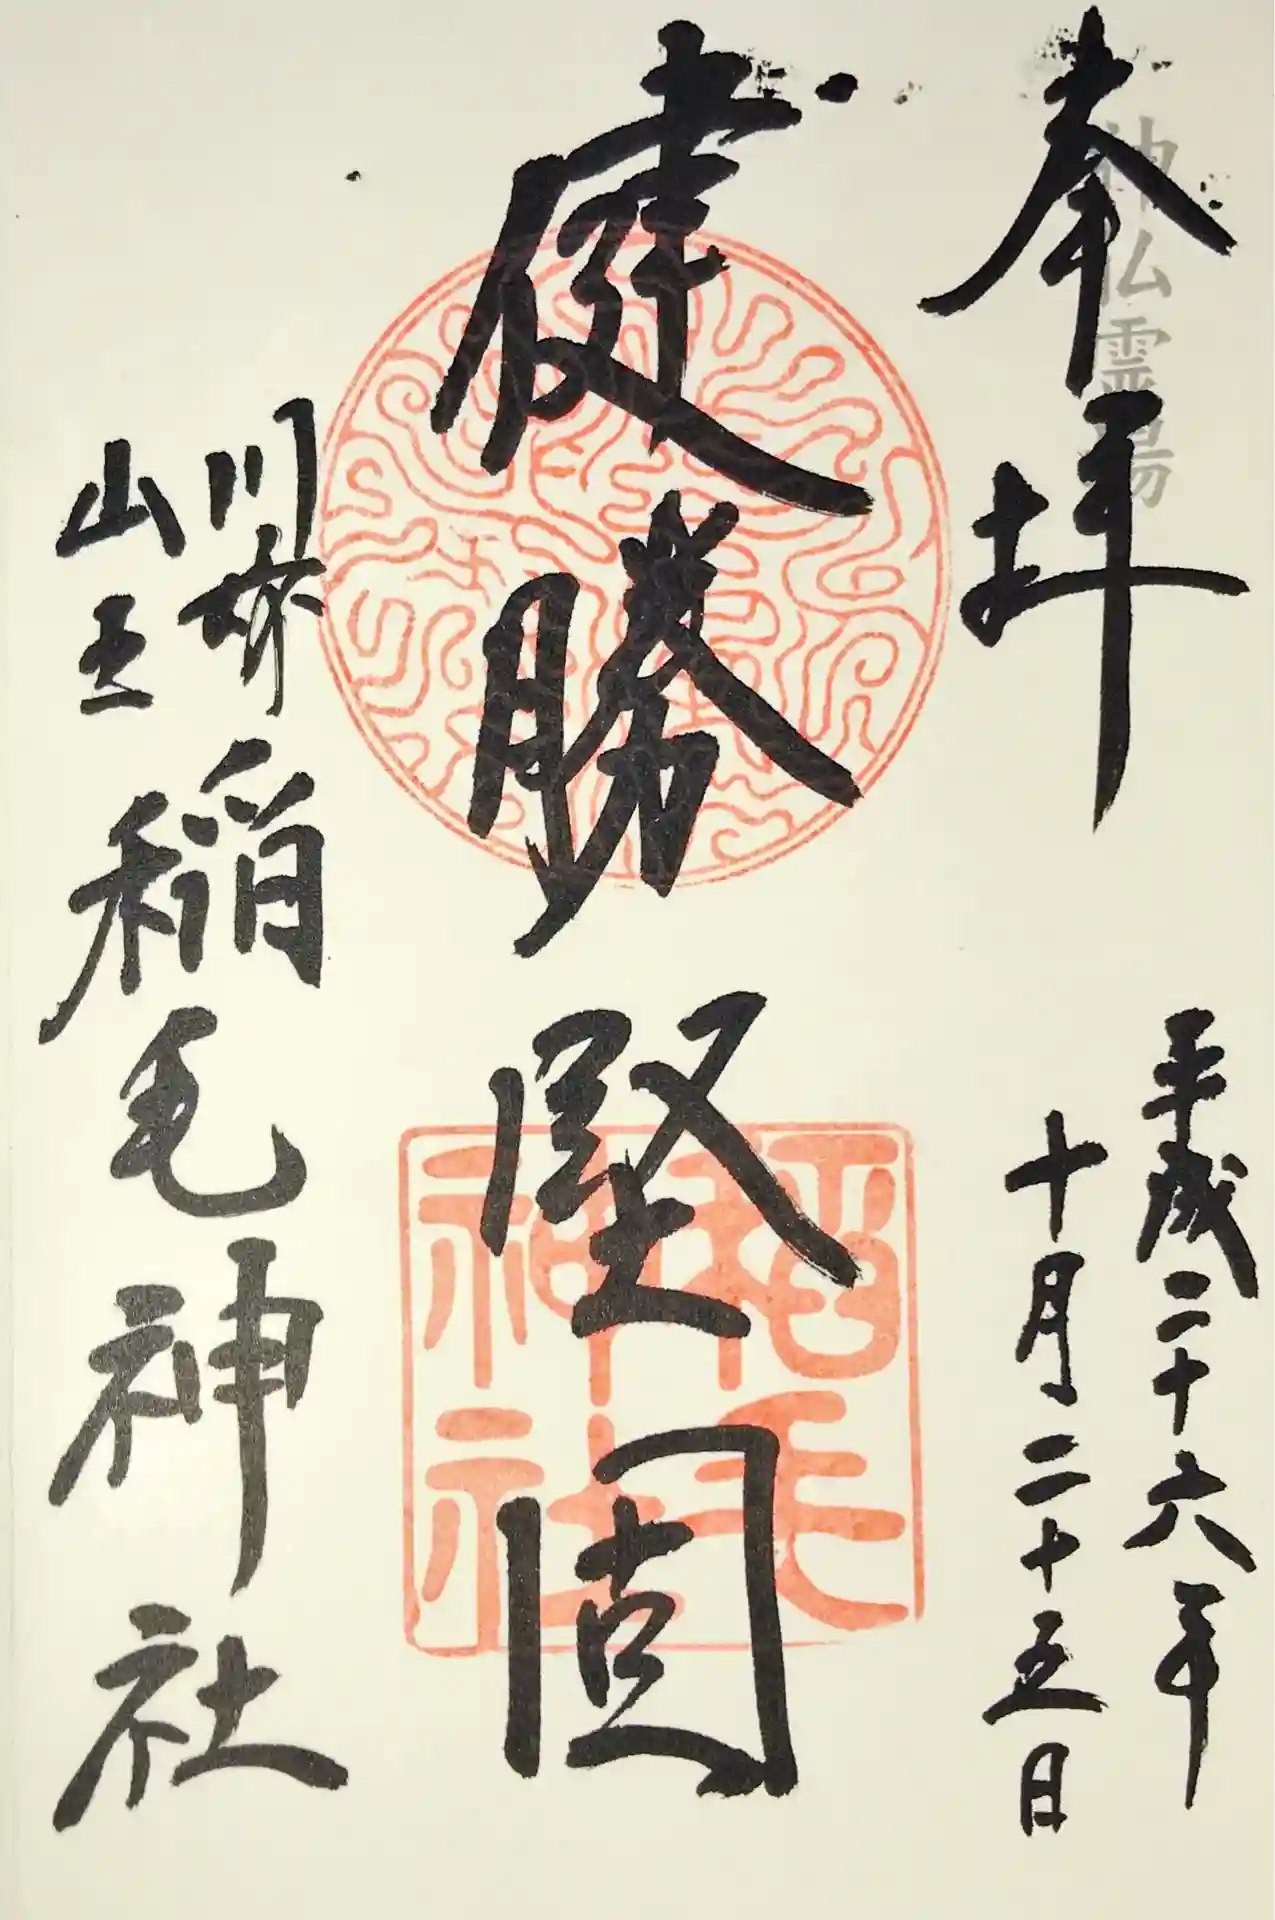 神仏霊場
奉拝
平成二十六年
十月二十五日
健勝堅固
稲毛
神社
川崎
山王
稲毛神社